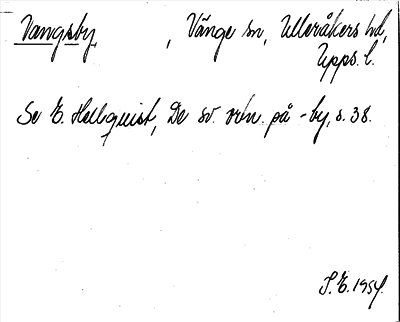 Vangsby, , Vänge sn, Ulleråkers hd,
Upps. l.
Se E. Hellquist, De sv. ortn. på -by, s. 38.
S.E. 1954.